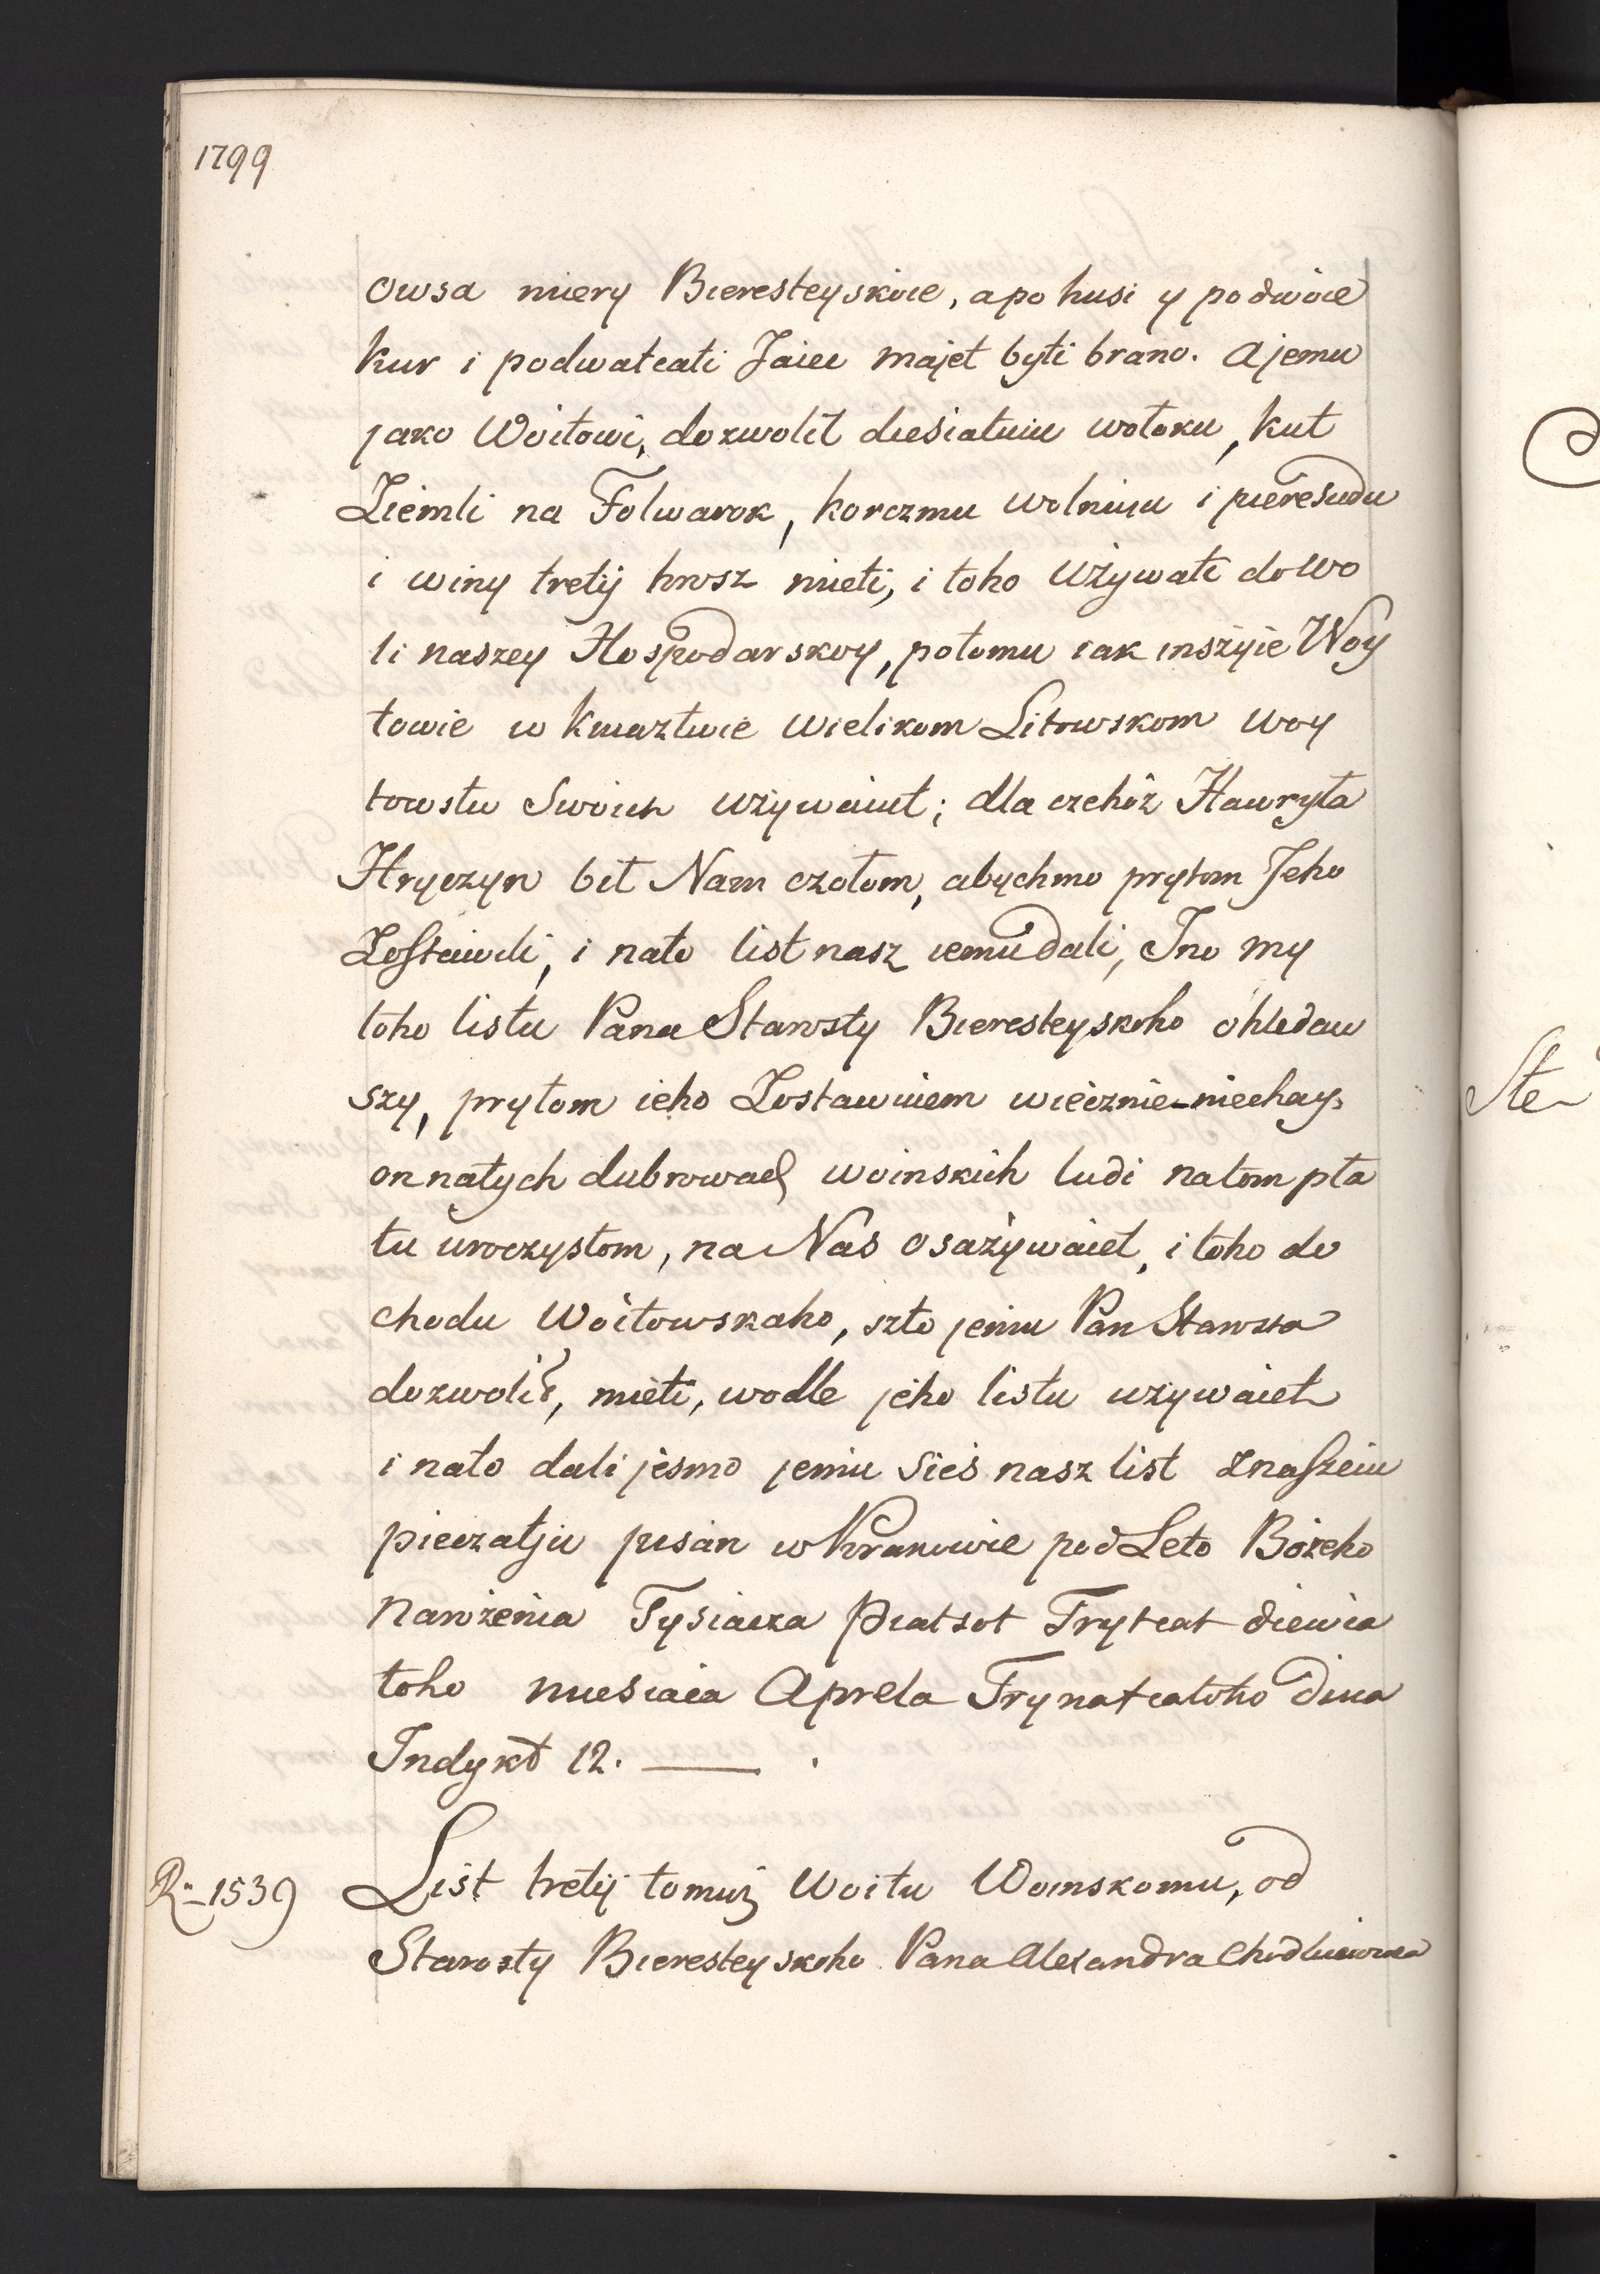 1799
owsa miery Bieresteyskoie, a po husi y po dwoie
kur i podwatcati Jaiec majet byti brano. A jemu
jako Woitowi, dozwolił diesiatuiu wołoku, kut
Ziemli na Folwarok, korczmu wolnuju i pieresudu
i winy tretij hrosz mieti, i toho Używati do wo
li naszey Hospodarskoy, potomu iak inszyie Woy
towie w Kniaztwie Wielikom Litowskom woy
towstw Swoich używaiut; dla czehoż Hawryła
Hryczyn bił Nam czołom, abychmo prytom Jeho
Zostawili, i nato list nasz iemu dali, Ino my
toho listu Pana Starosty Bieresteyskoho ohledaw
szy, prytom ieho Zostawuiem wiecznie niechay
on natych dubrowach woinskich ludi natom pła
tu uroczystom, na Nas osażywaiet, i toho do
chodu Woitowskaho, szto jemu Pan Starosta
dozwolił, mieti, wodle jeho listu używaiet
i nato dali jesmo jemu Sieś nasz list Znaszeiu
pieczatju pisan w Krakowie pod Leto Bożeho
Narożenia Tysiacza Piatsot Trytcat diewia
toho miesiaca Aprela Trynatcatoho dnia
Indykt 12.
R. 1539
List tretij tomuż Woitu Woinskomu, od
Starosty Bieresteyskoho Pana Alexandra Chodkiewicza
Ste